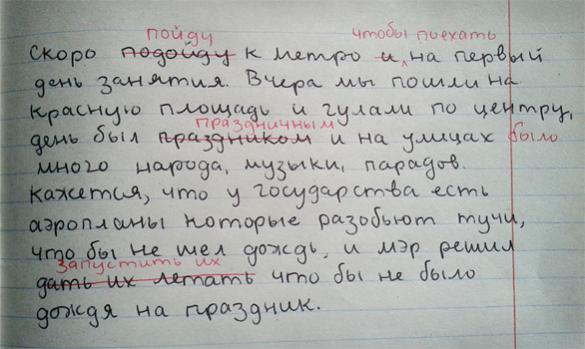 пойду чтобы поехать
Скоро подойду к метро и, на первый
день занятия. Вчера мы пошли на
красную площадь и гуляли по центру,
праздничным
день был праздником и на улицах было
много народа, музыки, парадов.
Кажется, что у государства есть
аэропланы которые разобьют тучи,
что бы не шел дождь, и мэр решил
запустить их
дать их летать что бы не было
дождя на праздник.